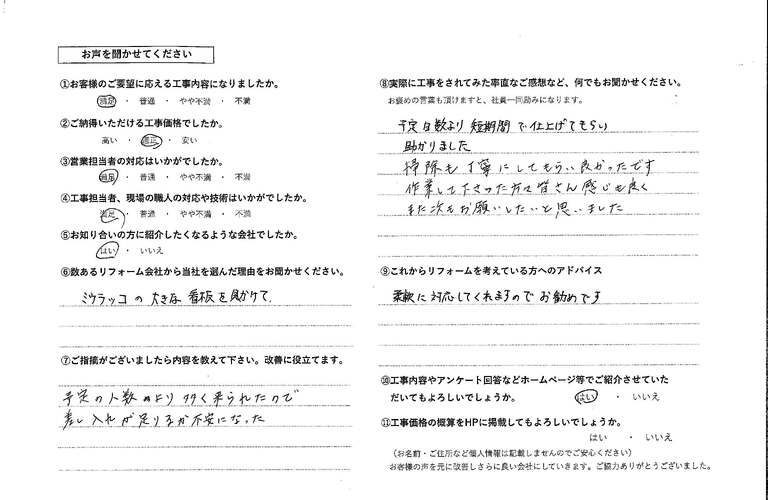 お声を聞かせてください
①お客様のご要望に応える工事内容になりましたか。
満足 ・ 普通 ・ やや不満 ・ 不満
②ご納得いただける工事価格でしたか。
高い ・ 適正 ・ 安い
③営業担当者の対応はいかがでしたか。
満足 ・ 普通 ・ やや不満 ・ 不満
④工事担当者、現場の職人の対応や技術はいかがでしたか。
満足 ・ 普通 ・ やや不満 ・ 不満
⑤お知り合いの方に紹介したくなるような会社でしたか。
はい ・ いいえ
⑥数あるリフォーム会社から当社を選んだ理由をお聞かせください。
ミウラッコの大きな看板を見かけて
⑦ご指摘がございましたら内容を教えて下さい。改善に役立てます。
予定の人数のより多く来られたので
差し入れが足りるか不安になった
⑧実際に工事をされてみた率直なご感想など、何でもお聞かせください。
お褒めの言葉も頂けますと、社員一同励みになります。
予定日数より短期間で仕上げてもらい
助かりました
掃除も丁寧にしてもらい良かったです
作業して下さった方々皆さん感じも良く
また次もお願いしたいと思いました
⑨これからリフォームを考えている方へのアドバイス
柔軟に対応してくれますのでお勧めです
⑩工事内容やアンケート回答などホームページ等でご紹介させていた
だいてもよろしいでしょうか。 はい ・ いいえ
⑪工事価格の概算をHPに掲載してもよろしいでしょうか。
はい ・ いいえ
（お名前・ご住所など個人情報は記載しませんのでご安心ください）
お客様の声を元に改善しさらに良い会社にしていきます。ご協力ありがとうございました。